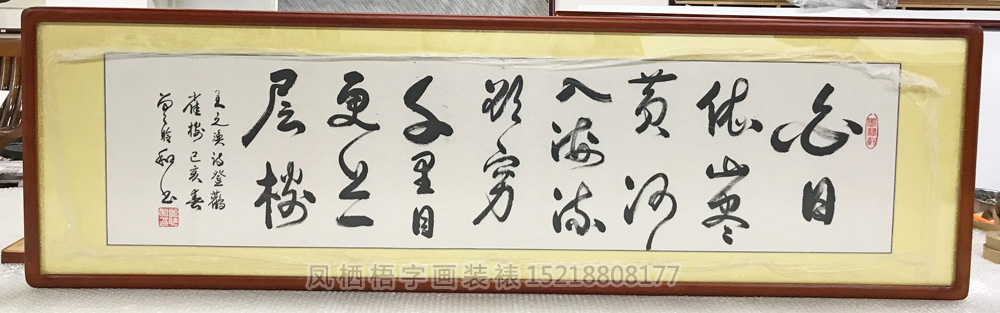 白日
依山尽
黄河
入海流
欲穷
千里目
更上一
层楼
王之涣诗登鹳
雀楼己亥春
书
凤栖梧字画装裱15218808177